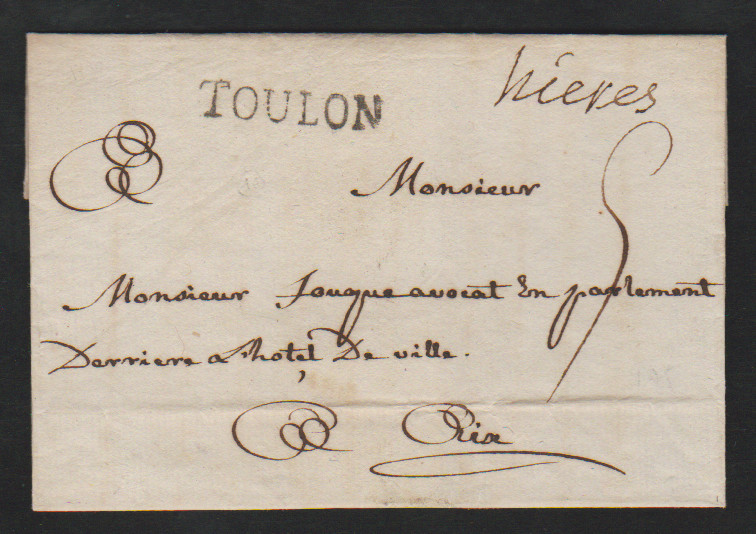 TOULON
hieres
5
Monsieur
Monsieur Jouque avocat En parlement
Derriere a L'hotel De ville.
Aix